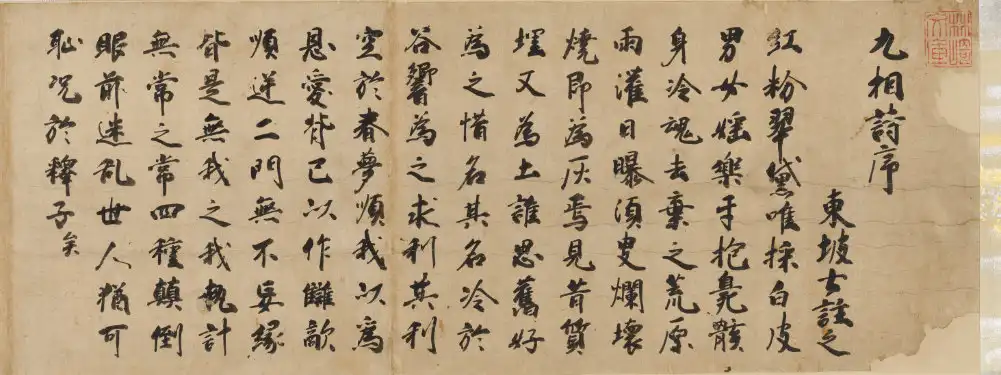 九相詩序
東坡士註之
紅粉翠黛唯採白皮
男女婬樂手抱臭骸
身冷魂去棄之荒原
雨灌日曝須臾爛壞
燒即為灰焉見昔質
埋又為土誰思舊好
為之惜名其名冷於
谷響為之求利其利
空於春夢順我以為
恩愛背己以作讎敵
順逆二門無不妄緣
皆是無我之我執計
無常之常四種顛倒
眼前迷乱世人猶可
恥況於釋子矣